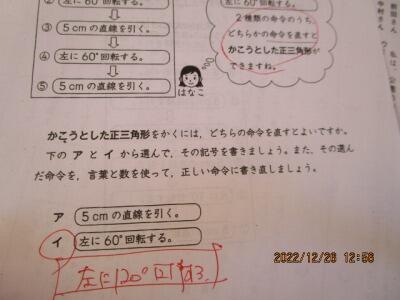 ② 左に60°回転する。
③ 5cmの直線を引く。
④ 左に60°回転する。
⑤ 5cmの直線を引く。
左に60°回転する。
2種類の命令のうち
どちらかの命令を直すと
かこうとした正三角形が
できますね。
はなこ
かこうとした正三角形をかくには、どちらの命令を直すとよいですか。
下の ア と イ から選んで、その記号を書きましょう。また、その選ん
だ命令を、言葉と数を使って、正しい命令に書き直しましょう。
ア 5cmの直線を引く。
イ 左に60°回転する。
左に120°回転する。
2022/12/26 12:56